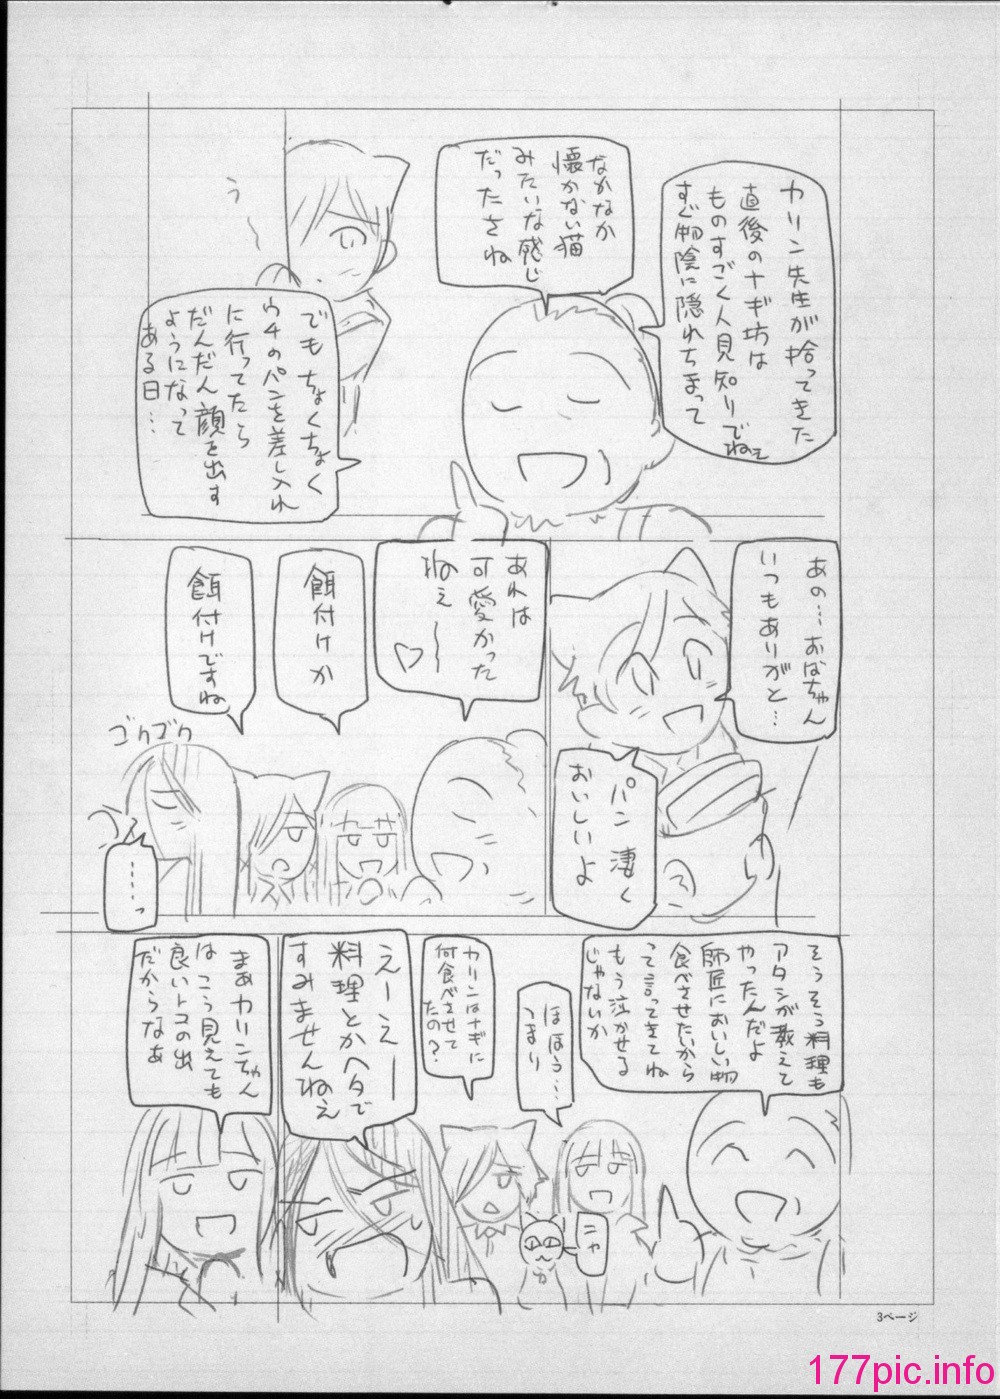 カリン先生が拾ってきた
直後のナギ坊は
ものすごく人見知りでねぇ
すぐ物陰に隠れちまって
なかなか
懐かない猫
みたいな感じ
だったさね
う
でもちょくちょく
ウチのパンを差し入れ
に行ってたら
だんだん顔を出す
ようになって
ある日…
あの…おばちゃん
いつもありがと…
パン凄く
おいしいよ
あれは
可愛かった
ねぇ〜♡
餌付けか
餌付けですね
ゴクゴク
……っ
そうそう料理も
アタシが教えて
やったんだよ
師匠においしい物
食べさせたいから
って言ってきてね
もう泣かせる
じゃないか
ほほう…
つまり
カリンはナギに
何食べさせて
たの?
ニャ
えーえー
料理とかヘタで
すみませんねえ
まあカリンちゃん
はこう見えても
良いトコの出
だからなぁ
3ページ
177pic.info